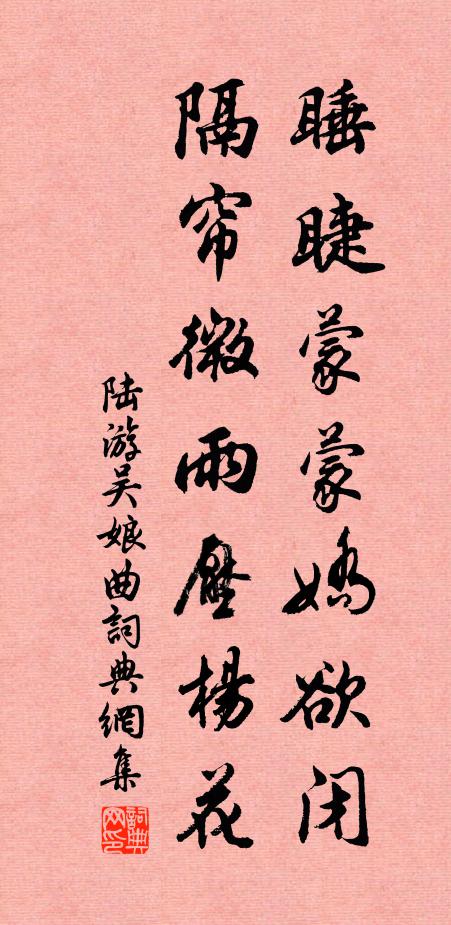 睡睫蒙蒙嬌欲闭
隔帘微雨壓楊花
陆游吴娘曲詞典網集
詞典网印